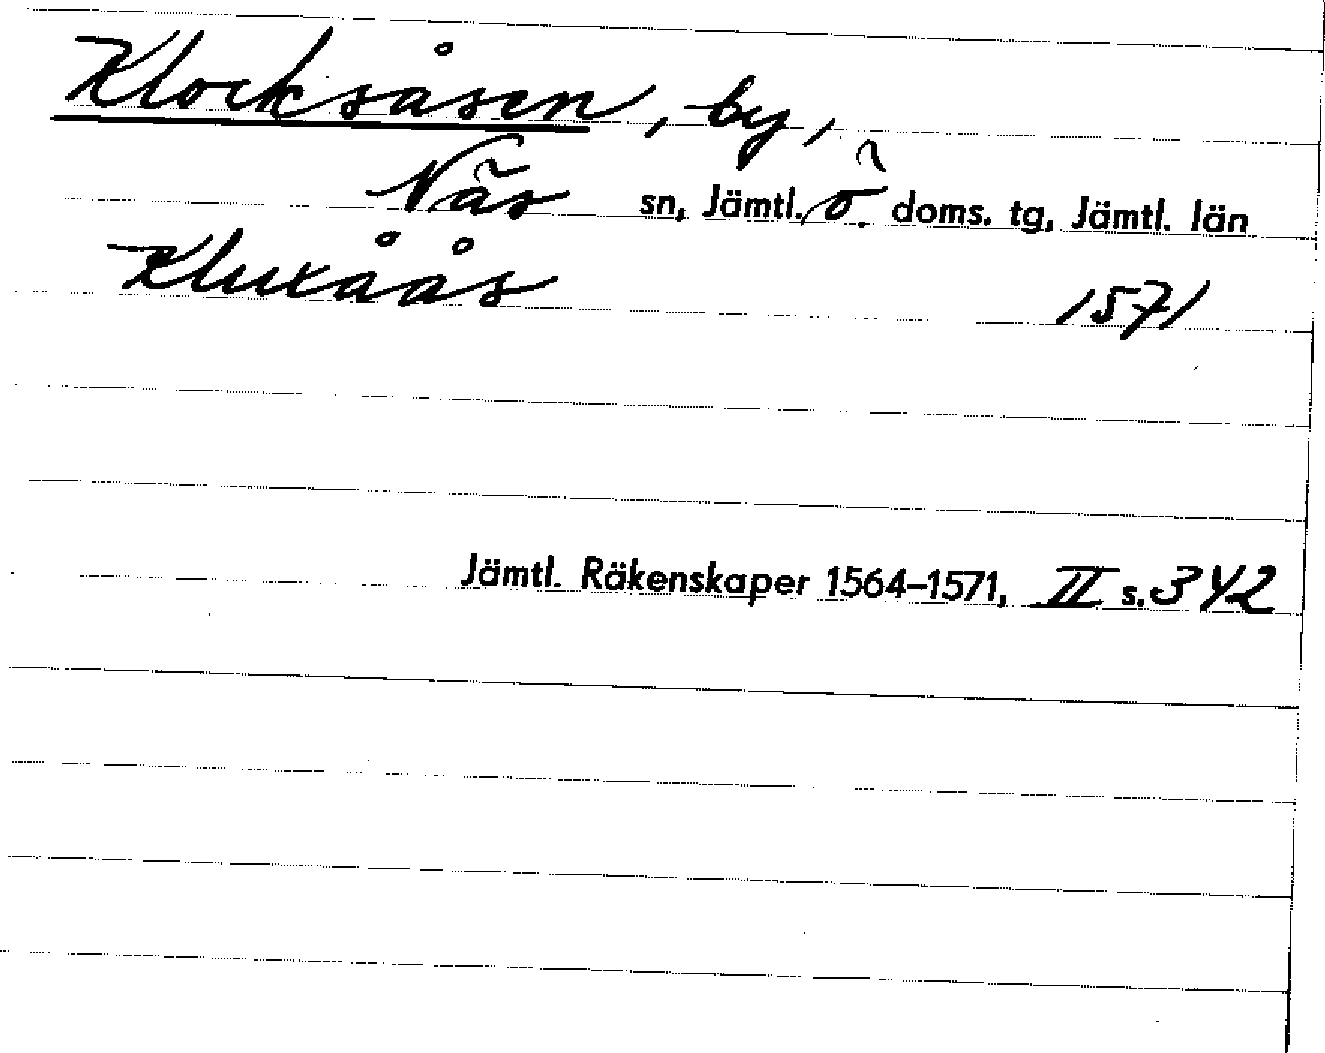 Klocksåsen, by,
Näs sn, Jämtl. ö. doms. tg, Jämtl. län
Kluxåås 1571
Jämtl. Räkenskaper 1564-1571, II s. 342